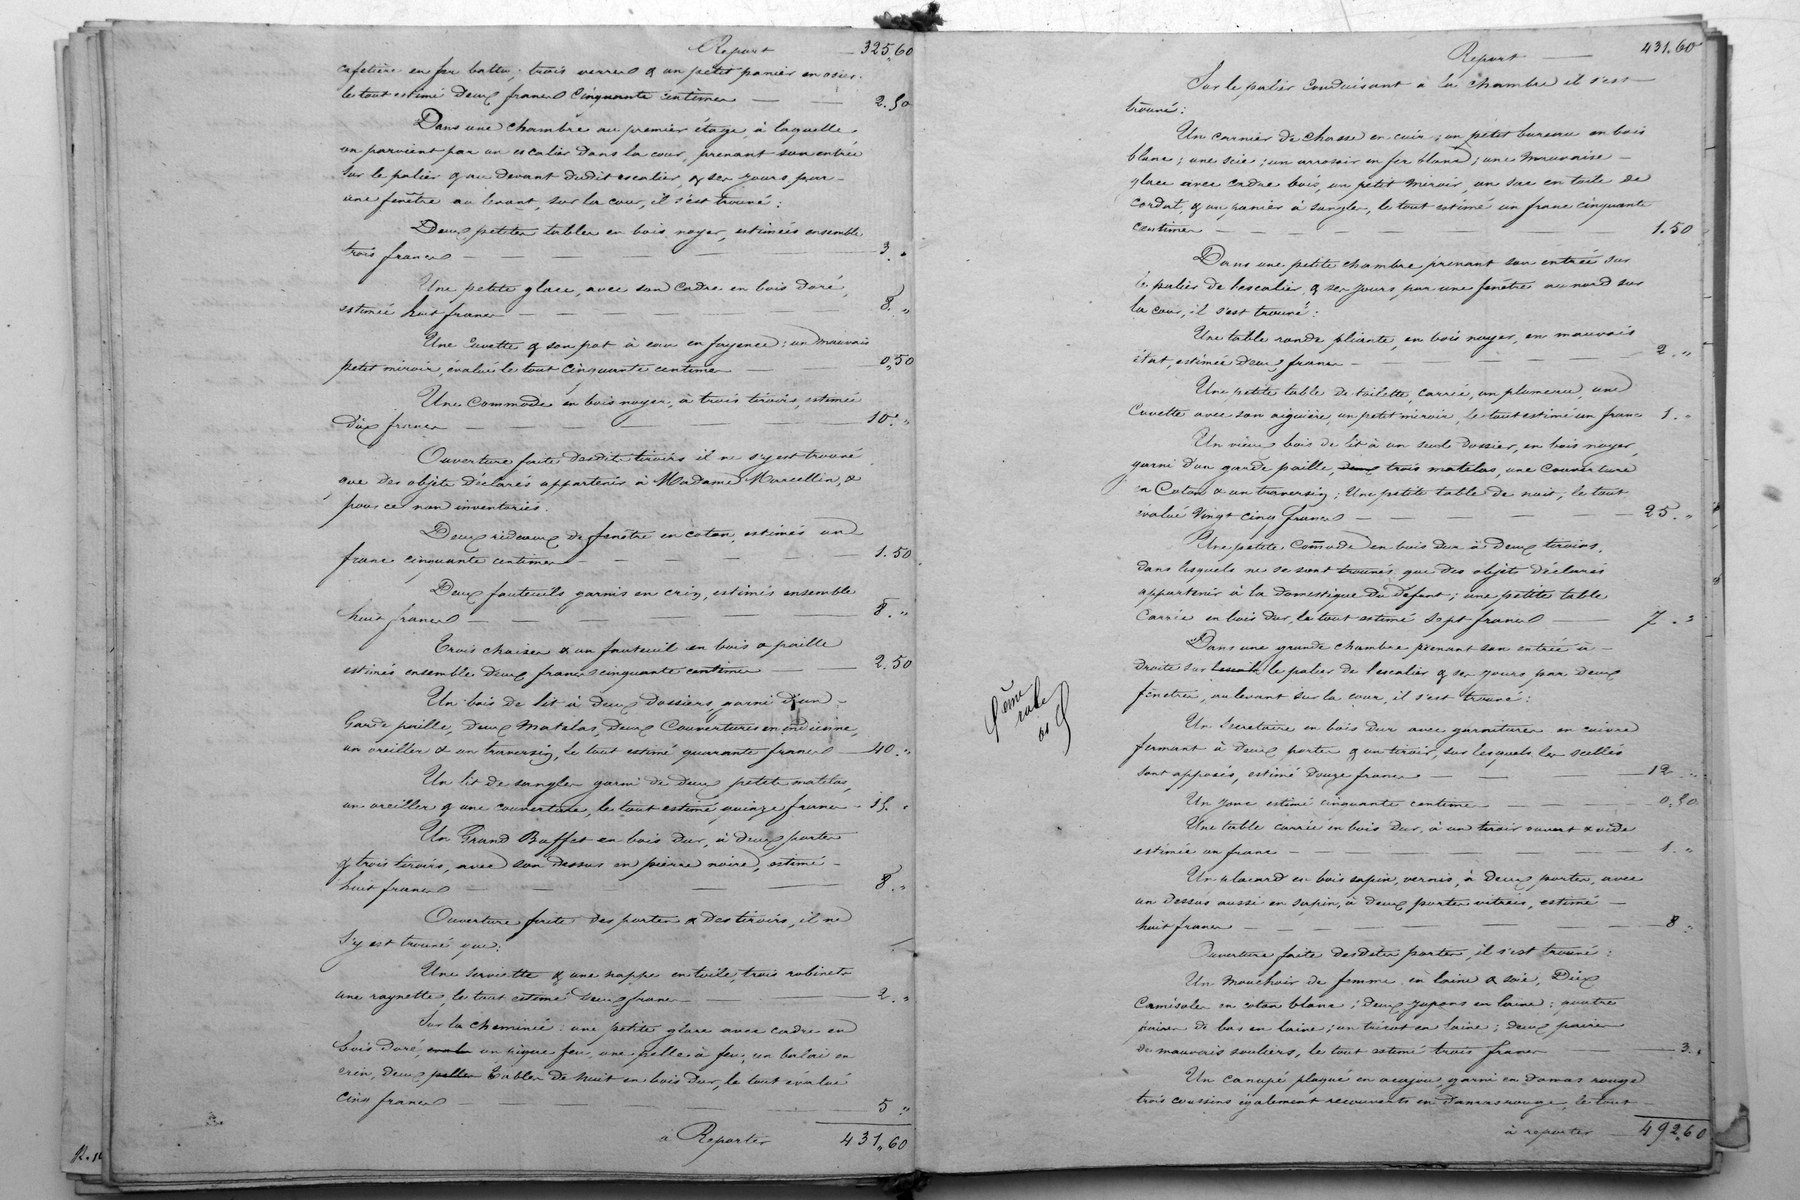 Report — 325,60
cafetière en fer battu; trois verres & un petit panier en osier.
le tout estimé Deux francs Cinquante centimes — — 2.50
Dans une chambre au premier étage, à laquelle
on parvient par un escalier dans la cour, prenant son entrée
sur le palier & au devant dudit escalier, & ses jours par
une fenêtre au levant, sur la cour, il s'est trouvé:
Deux petites tables en bois noyer, estimées ensemble
trois francs — 3. "
Une petite glace, avec son cadre en bois doré,
estimée huit francs — 8. "
Une cuvette & son pot à eau en fayence; un mauvais
petit miroir, évalué le tout cinquante centimes — 0,50
Une Commode en bois noyer, à trois tiroirs, estimée
dix francs — 10. "
Ouverture faite desdits tiroirs il ne s'y est trouvé
que des objets déclarés appartenir à Madame Marcellin, &
pour ce non inventoriés.
Deux rideaux de fenêtre en coton, estimés un
franc cinquante centimes — 1.50
Deux fauteuils garnis en crin, estimés ensemble
huit francs — 8. "
Trois chaises & un fauteuil en bois & paille
estimés ensemble deux francs cinquante centimes — 2.50
Un bois de lit à deux dossiers, garni d'un
Garde paille, deux Matelas, deux Couvertures en indienne,
un oreiller & un traversin, le tout estimé quarante francs — 40. "
Un lit de sangles garni de deux petits matelas,
un oreiller & une couverture, le tout estimé quinze francs — 15. "
Un Grand Buffet en bois dur, à deux portes
& trois tiroirs, avec son dessus en pierre noire, estimé
huit francs — 8. "
Ouverture faite des portes & des tiroirs, il ne
s'y est trouvé que:
Une serviette & une nappe en toile, trois robinets
une raynette, le tout estimé deux francs — 2. "
Sur la cheminée: une petite glace avec cadre en
bois doré, un pique feu, une pelle à feu, un balai en
crin, deux pelles tables de nuit en bois dur, le tout évalué
cinq francs — 5 "
a Reporter 431,60
Report — 431.60
Sur le palier conduisant à la chambre il s'est
trouvé:
Un carnier de chasse en cuir; un petit bureau en bois
blanc; une scie; un arrosoir en fer blanc; une mauvaise
glace avec cadre bois, un petit miroir, un sac en toile de
cordat, & un panier à sangles, le tout estimé un franc cinquante
centimes — 1.50
Dans une petite chambre prenant son entrée sur
le palier de l'escalier & ses jours par une fenêtre au nord sur
la cour, il s'est trouvé:
Une table ronde pliante, en bois noyer, en mauvais
état, estimée deux francs — 2. "
Une petite table de toilette, carrée, un plumeau, une
Cuvette avec son aiguière, un petit miroir, le tout estimé un franc 1. "
Un vieux bois de lit à un seul dossier, en bois noyer,
garni d'un garde paille, deux trois matelas, une couverture
en Coton & un traversin; Une petite table de nuit, le tout
évalué Vingt cinq francs — 25. "
Une petite Comode en bois dur à deux tiroirs,
dans lesquels ne se sont trouvés que des objets déclarés
appartenir à la domestique du défunt; une petite table
Carrée en bois dur, le tout estimé sept francs — 7. "
Dans une grande chambre prenant son entrée à
droite sur le palier de l'escalier & ses jours par deux
fenêtres, au levant sur la cour, il s'est trouvé:
Un Secrétaire en bois dur avec garnitures en cuivre
fermant à deux portes & un tiroir, sur lesquels les scellés
sont apposés, estimé douze francs — 12. "
Un jonc estimé cinquante centimes — 0.50
Une table carrée en bois dur, à un tiroir ouvert & vide
estimée un franc — 1. "
Un placard en bois sapin, vernis, à deux portes, avec
un dessus aussi en sapin, à deux portes vitrées, estimé
huit francs — 8. "
Ouverture faite desdites portes, il s'est trouvé:
Un Mouchoir de femme en laine & soie, Dix
Camisoles en coton blanc; deux jupons en laine; quatre
paires de bas en laine; un tricot en laine; deux paires
de mauvais souliers, le tout estimé trois francs — 3. "
Un canapé plaqué en acajou, garni en damas rouge
trois coussins également recouverts en damas rouge, le tout
à reporter — 492,60